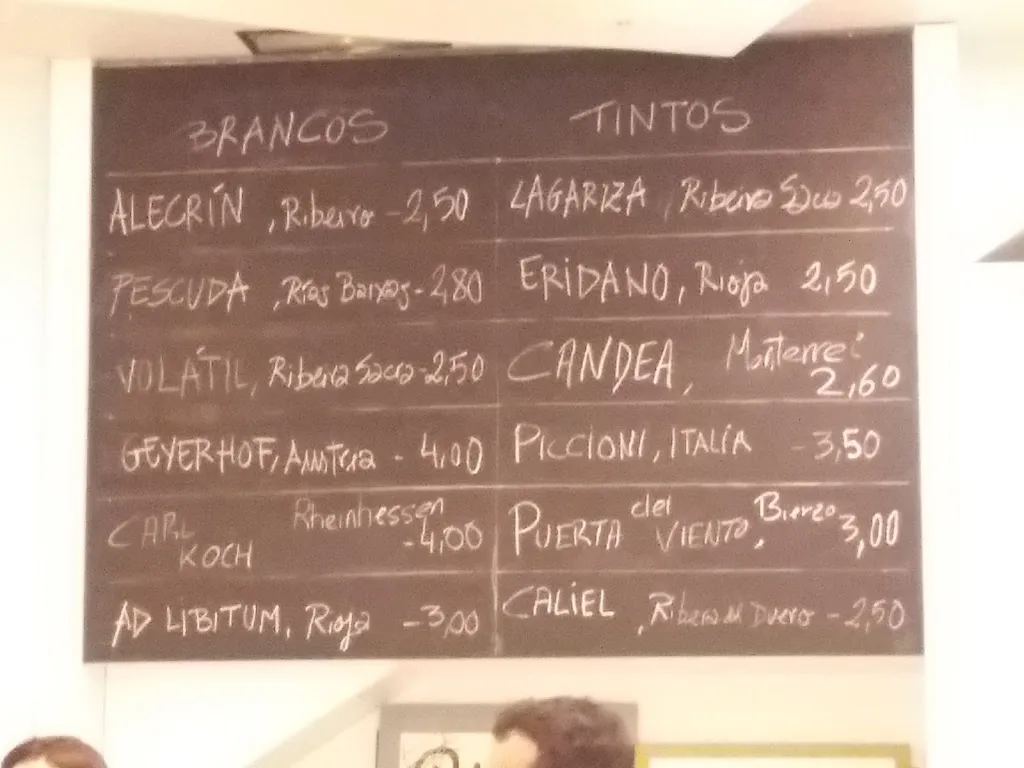 BRANCOS
ALECRÍN, Ribeiro - 2,50
PESCUDA, Rías Baixas - 2,80
VOLÁTIL, Ribeira Sacra - 2,50
GEYERHOF, Austria - 4,00
CARL KOCH Rheinhessen - 4,00
AD LIBITUM, Rioja - 3,00
TINTOS
LAGARIZA, Ribeira Sacra 2,50
ERIDANO, Rioja 2,50
CANDEA, Monterrei 2,60
PICCIONI, ITALIA - 3,50
PUERTA del VIENTO, Bierzo 3,00
CALIEL, Ribera del Duero - 2,50